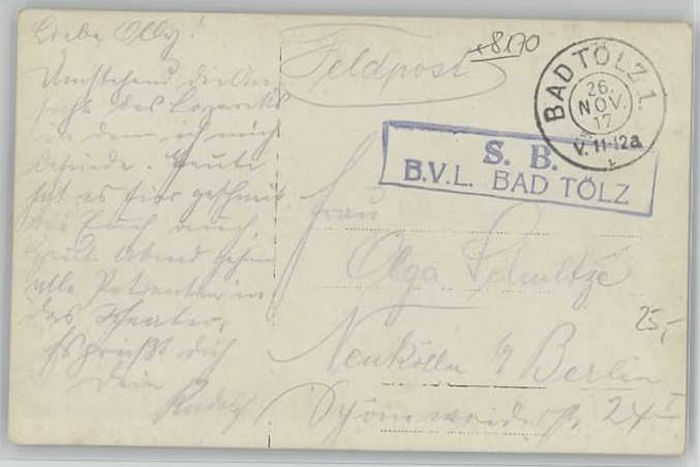 Liebe Olly!
Umstehend die An
sicht des Lazaretts
in dem ich mich
befinde. Heute
hat es hier geschneit.
bei Euch auch,
heut Abend gehen
alle Patienten in
das Theater.
Es grüßt dich
Dein
Rudolf
Feldpost
8170
BAD TÖLZ 1.
26.
NOV.
17
V. 11-12a
S. B.
B.V.L. BAD TÖLZ
Frau
Olga Schultze
Neukölln b/ Berlin
Schönweiderstr. 24 I
25,-